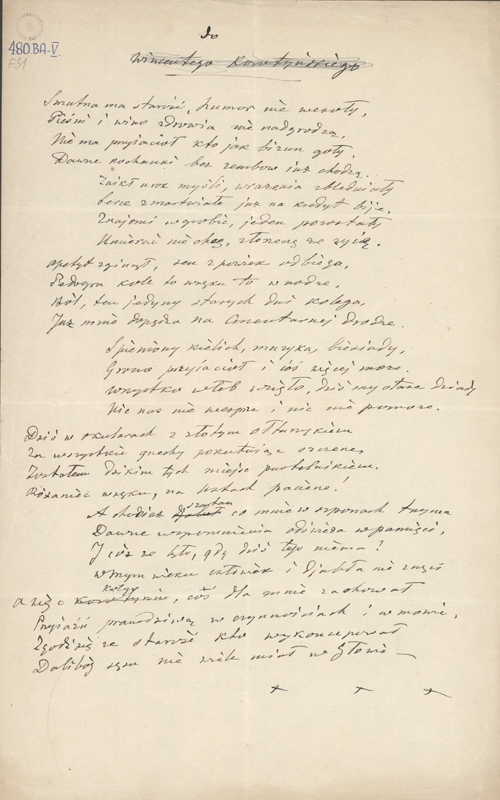 480 BA-V.
F31
do
Wincentego Korotyńskiego
Smutna ma starość, humor nie wesoły,
Pieśni i wino zdrowia nie nadgrodzą,
Nie ma przyjaciół kto jak bizun goły,
Dawne kochanki bez zembow już chodzą.
Znikł urok myśli, wrażenia zbledniały
Serce zmartwiałe już na kredyt bije,
Znajomi w grobie, jeden pozostały
Umierać nie chcę, złoszcząc że żyję.
Apetyt zginął, sen z powiek odbiega,
Pedogra kole to w ręku to w nodze,
Ból, ten jedyny starych dni kolega,
Już mnie dopędza na Cmentarnej drodze.
Spieniony kielich, muzyka, biesiady,
Grono przyjaciół i cóś więcej może.
Wszystko w łeb wzięło, dziś my stare dziady
Nic nas nie wesprze i nic nie pomoże.
Dziś w okularach z złotym ołtarzykiem
Za wszystkie grzechy pokutując szczerze,
Zostałem dzikim tych miejsc pustelnikiem.
Różaniec w ręku, na ustach pacierze!
A chociaż szatan co mnie w szponach trzyma
Dawne wspomnienia odświeża w pamięci,
I cóż ze tylu, gdy dziś tego niema?
W mym wieku człowiek i djabła nie znęci
A więc o, cóś dla mnie zachował
Przyjaźń prawdziwą w czynnościach i w mowie,
Zgodzisz się że starość kto wykoncypował
Dalibóg sęsu nie wiele miał w głowie —